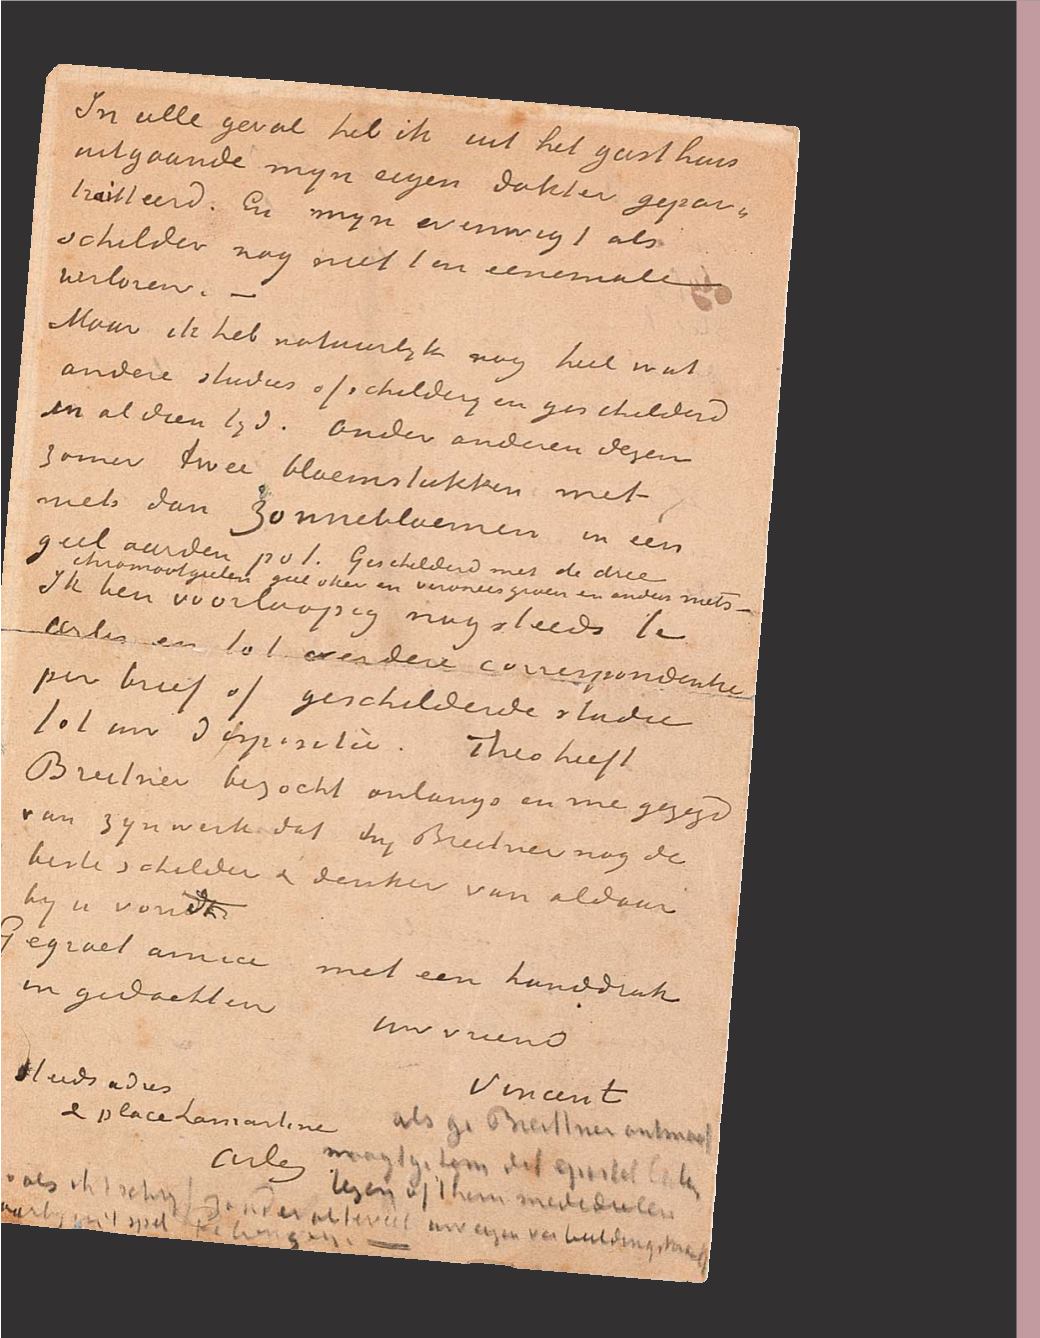 In alle geval heb ik uit het gasthuis
uitgaande myn eigen dokter gepor„
traitteerd. En myn evenwigt als
schilder nog niet ten eenemale
verloren. —
Maar ik heb natuurlyk nog heel wat
andere studies of schilderyen geschilderd
in al dien tyd. Onder anderen dezen
zomer twee bloemstukken met
niets dan Zonnebloemen in een
geel aarden pot. Geschilderd met de drie
chromaatgeelen geel oker en veroneesgroen en anders niets —
Ik ben voorloopig nog steeds te
Arles en tot verdere correspondentie
per brief of geschilderde studie
tot uw dispositie. Theo heeft
Breitner bezocht onlangs en me gezegd
van zyn werk dat hy Breitner nog de
beste schilder & denker van aldaar
by u vond
Gegroet amice met een handdruk
in gedachten
uw vriend
Vincent
Steeds adres
2 place Lamartine
Arles
als ge Breitner ontmoet
moogt ge hem dit epistel laten
lezen of 't hem mededeelen
als ik 't schryf zonder al te veel uw eigen verbeeldingskracht
daarby in 't spel te brengen. —